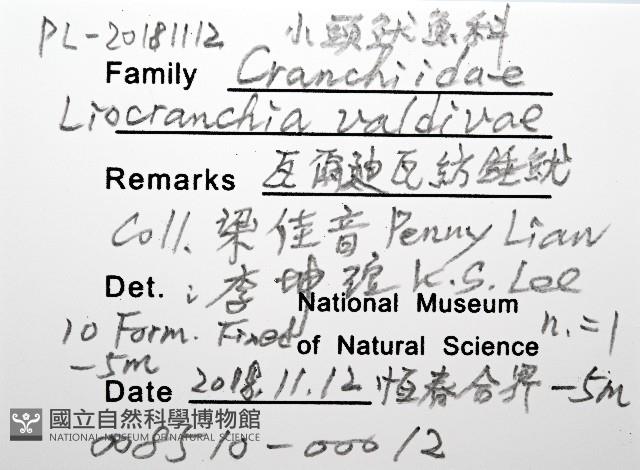 PL-20181112 小頭魷魚科
Family Cranchiidae
Liocranchia valdivae
Remarks 瓦爾迪瓦紡錘魷
Coll. 梁佳音 Penny Lian
Det. : 李坤瑄 K.S. Lee
National Museum
10 Form. Fixed of Natural Science n.=1
-5m
Date 2018.11.12 恆春合界 -5m
國立自然科學博物館
NATIONAL MUSEUM OF NATURAL SCIENCE
008510-00012